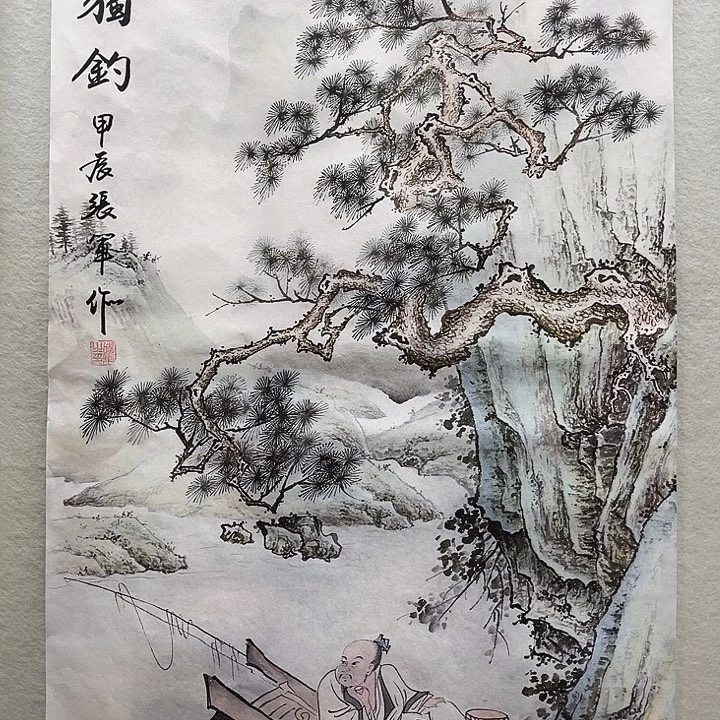 獨釣
甲辰張軍作